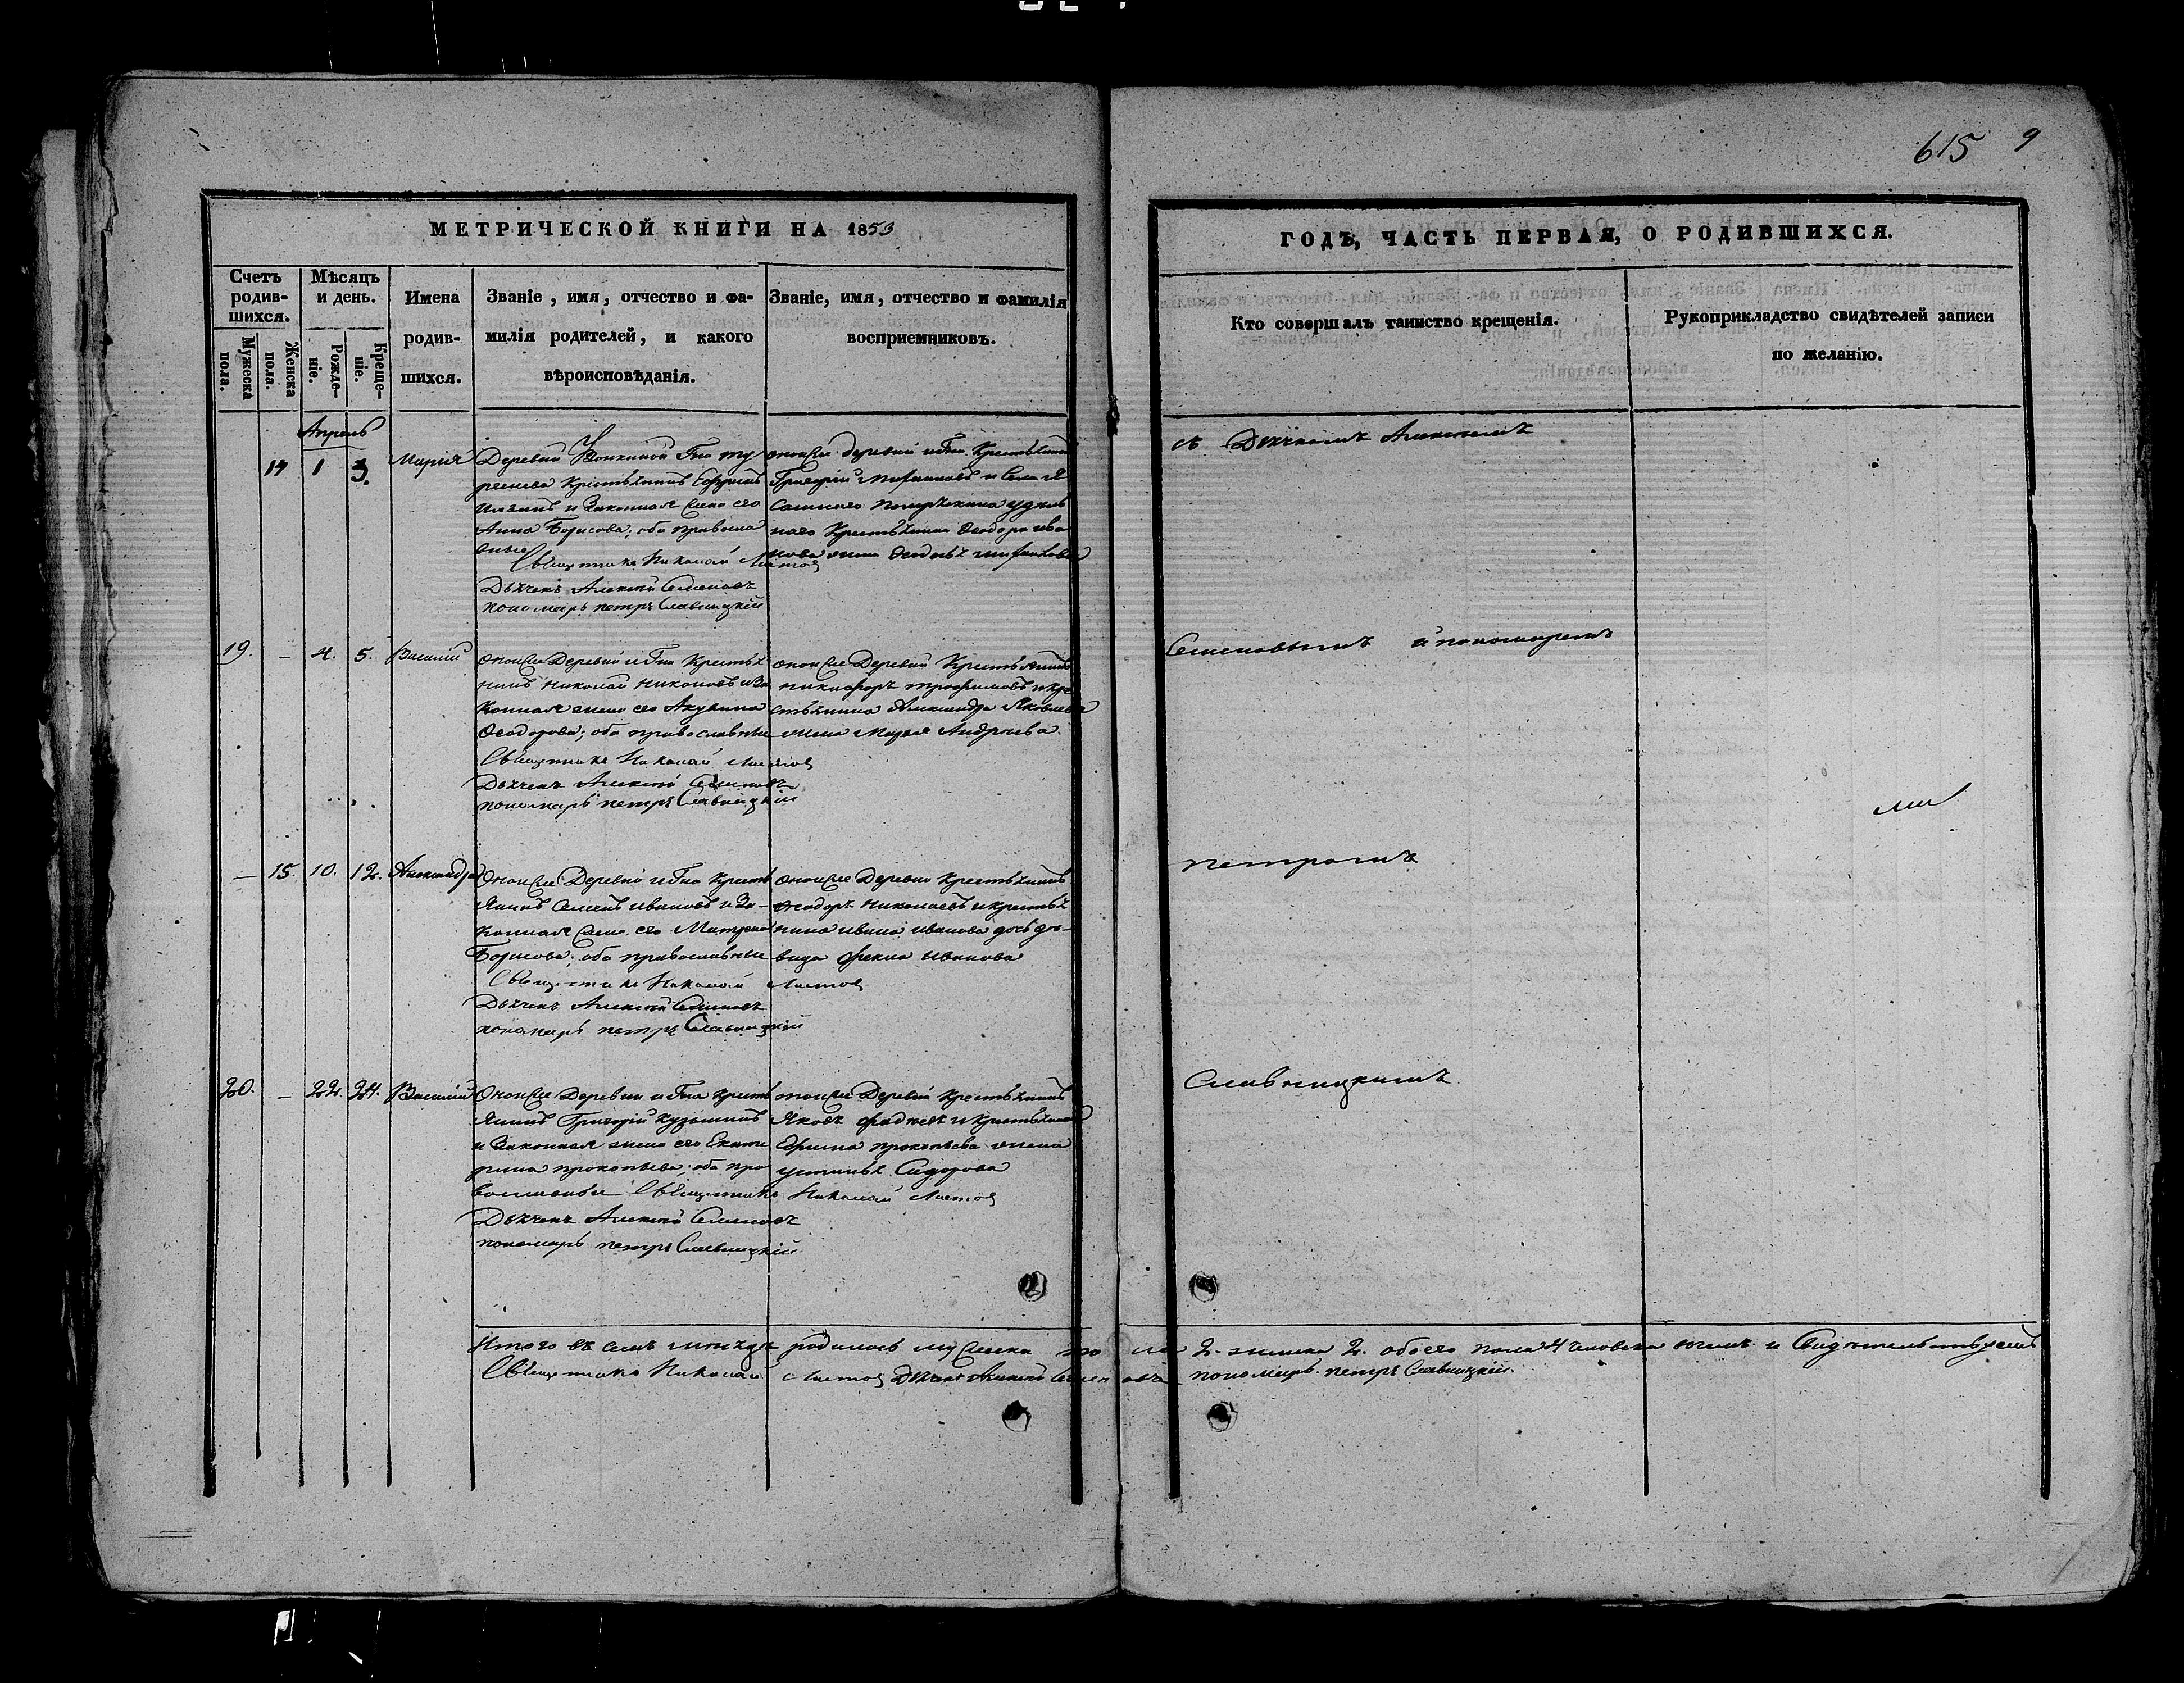 615 9
МЕТРИЧЕСКОЙ КНИГИ НА 1853
ГОДЪ, ЧАСТЬ ПЕРВАЯ, О РОДИВШИХСЯ.
Счетъ родив-шихся.
Мужеска пола.
Женска пола.
Мѣсяцъ и день.
Рожде-ніе.
Креще-ніе.
Имена родив-шихся.
Званіе, имя, отчество и фа-
милія родителей, и какого
вѣроисповѣданія.
Званіе, имя, отчество и фамилія
воспріемниковъ.
Кто совершалъ таинство крещенія.
Рукоприкладство свидѣтелей записи
по желанію.
Апрель
14 1 3. Марія
Деревни Гна Ту
крестьянинъ
и законная жена его
Анна Борисова; оба правосла
вные
Священникъ Николай
Дьячекъ Алексѣй Семеновъ
пономарь петръ Славницкій
оноиже деревни и Гна Крестьянинъ
Григорій и села
удѣль
наго Крестьянина Ѳеодора Ива
нова жена
съ Дьячкомъ Алексѣемъ
19. — 4. 5. Василій
оноиже Деревни и Гна Крестья
нинъ Николай Никоновъ и за
конная жена его Акулина
Ѳеодорова; оба православные
Священникъ Николай
Дьячекъ Алексѣй Семеновъ
пономарь петръ Славницкій
оноиже Деревни Крестьянинъ
никифоръ трофимовъ и кре
стьянина Александра Яковлева
жена Марья Андреева
Семеновымъ и пономаремъ
— 15. 10. 12. Александра
Оноиже Деревни и Гна Кресть
янинъ Семенъ Ивановъ и За-
конная жена его Матрена
Борисова; оба православные
Священникъ Николай
Дьячекъ Алексѣй Семеновъ
пономарь петръ Славницкій
оноиже Деревни Крестьянинъ
Ѳеодоръ Николаевъ и крестья
нина Ивана Иванова дочь дѣ-
вица Фекла Иванова
петромъ
20. — 22. 24. Василій
Оноиже Деревни и Гна Кресть
янинъ Григорій Кузьминъ
и Законная жена его Екате
рина прокопьева; оба пра
вославные Священникъ Николай
Дьячекъ Алексѣй Семеновъ
пономарь петръ Славницкій
тоиже Деревни Крестьянинъ
Яковъ и Крестьянина
Ефима прокопьева жена
Устинья Сидорова
Славницкимъ
Итого въ семъ месяцѣ родилось мужеска пола 2. женска 2. обоего пола 4 человека въ чемъ и Свидѣтельствуемъ
Священникъ Николай Дьячекъ Алексѣй Семеновъ пономарь петръ Славницкій